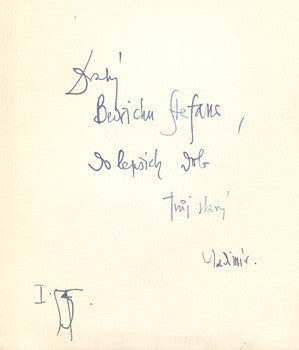 Drahý
Bedřichu Štefane,
do lepších dob
Tvůj starý
Vladimír.
I.